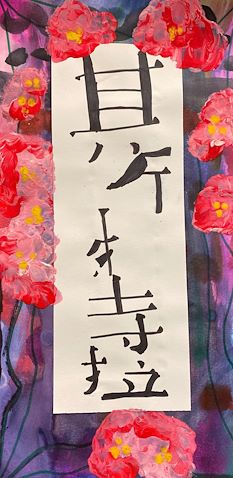 斯特拉